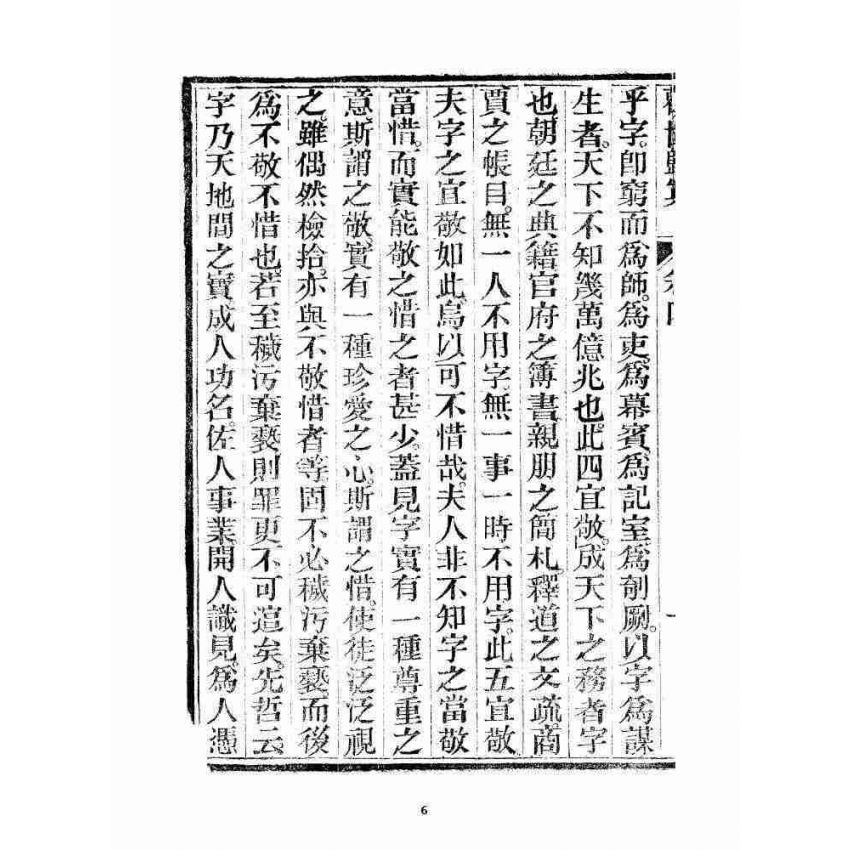 乎字。卽窮而爲師。爲吏。爲幕賓。爲記室。爲剞劂。以字爲謀
生者。天下不知幾萬億兆也。此四宜敬。成天下之務者字
也。朝廷之典籍。官府之簿書。親朋之簡札。釋道之文疏。商
賈之帳目。無一人不用字。無一事一時不用字。此五宜敬
夫字之宜敬如此。烏以可不惜哉。夫人非不知字之當敬
當惜。而實能敬之惜之者甚少。蓋見字實有一種尊重之
意。斯謂之敬。實有一種珍愛之心。斯謂之惜。使徒泛泛視
之。雖偶然檢拾。亦與不敬惜者等。固不必穢污棄褻。而後
爲不敬不惜也。若至穢污棄褻則罪更不可逭矣。先哲云
字乃天地間之寶。成人功名。佐人事業。開人識見。爲人憑
6